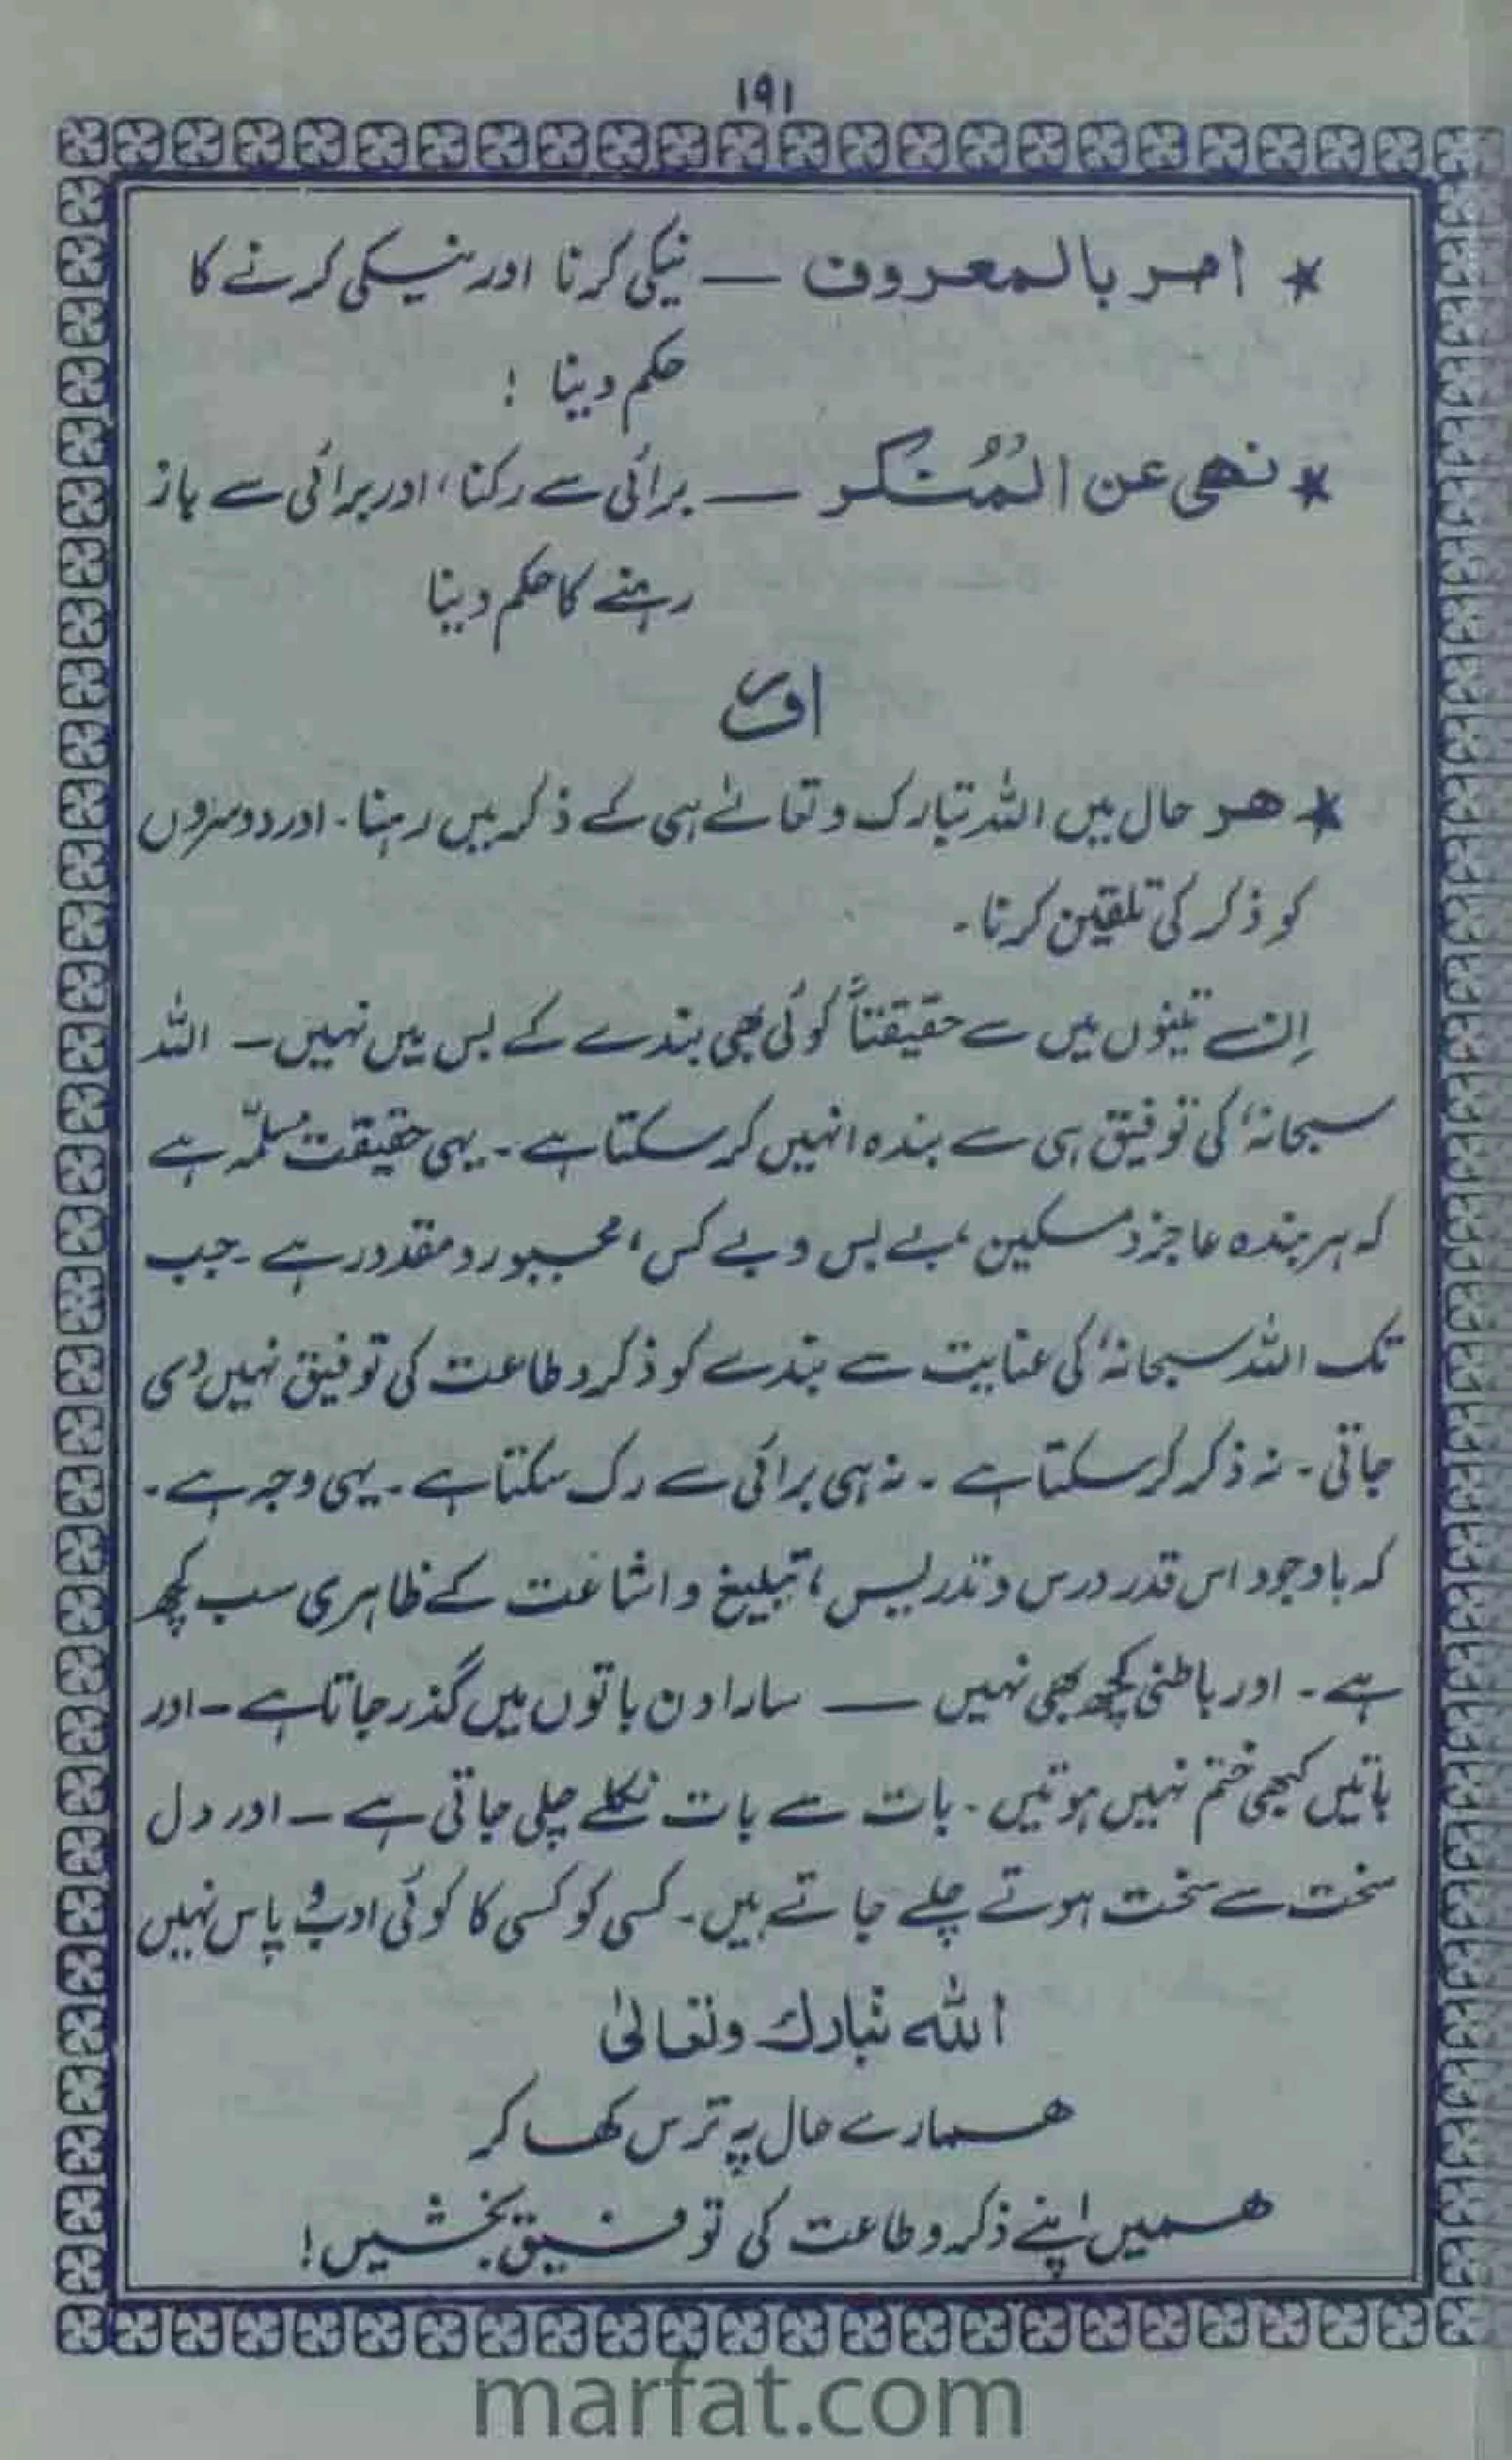 ۱۹۱
★ امر بالمعروف — نیکی کرنا اور نیکی کرنے کا
حکم دینا !
★ نهی عن المُنکر — برائی سے رکنا، اور برائی سے باز
رہنے کا حکم دینا
اور
★ ھر حال میں اللہ تبارک و تعالےٰ ہی کے ذکر میں رہنا۔ اور دوسروں
کو ذکر کی تلقین کرنا۔
اِن تینوں میں سے حقیقتاً کوئی بھی بندے کے بس میں نہیں۔ اللہ
سبحانہٗ کی توفیق ہی سے بندہ انہیں کر سکتا ہے۔ یہی حقیقت مُسلمّہ ہے
کہ ہر بندہ عاجز و مسکین، بے بس و بے کس، مجبور و مقدور ہے۔ جب
تک اللہ سبحانہٗ کی عنایت سے بندے کو ذکر و طاعت کی توفیق نہیں دی
جاتی۔ نہ ذکر کر سکتا ہے۔ نہ ہی برائی سے رک سکتا ہے۔ یہی وجہ ہے۔
کہ باوجود اس قدر درس و تدریس، تبلیغ و اشاعت کے ظاہری سب کچھ
ہے۔ اور باطنی کچھ بھی نہیں — سارا دن باتوں میں گذر جاتا ہے۔ اور
باتیں کبھی ختم نہیں ہوتیں۔ بات سے بات نکلے چلی جاتی ہے۔ اور دل
سخت سے سخت ہوتے چلے جاتے ہیں۔ کسی کو کسی کا کوئی ادب و پاس نہیں
اللہ تبارك وتعالیٰ
ھمارے حال پہ ترس کھا کر
ھمیں اپنے ذکر و طاعت کی توفیق بخشیں!
marfat.com